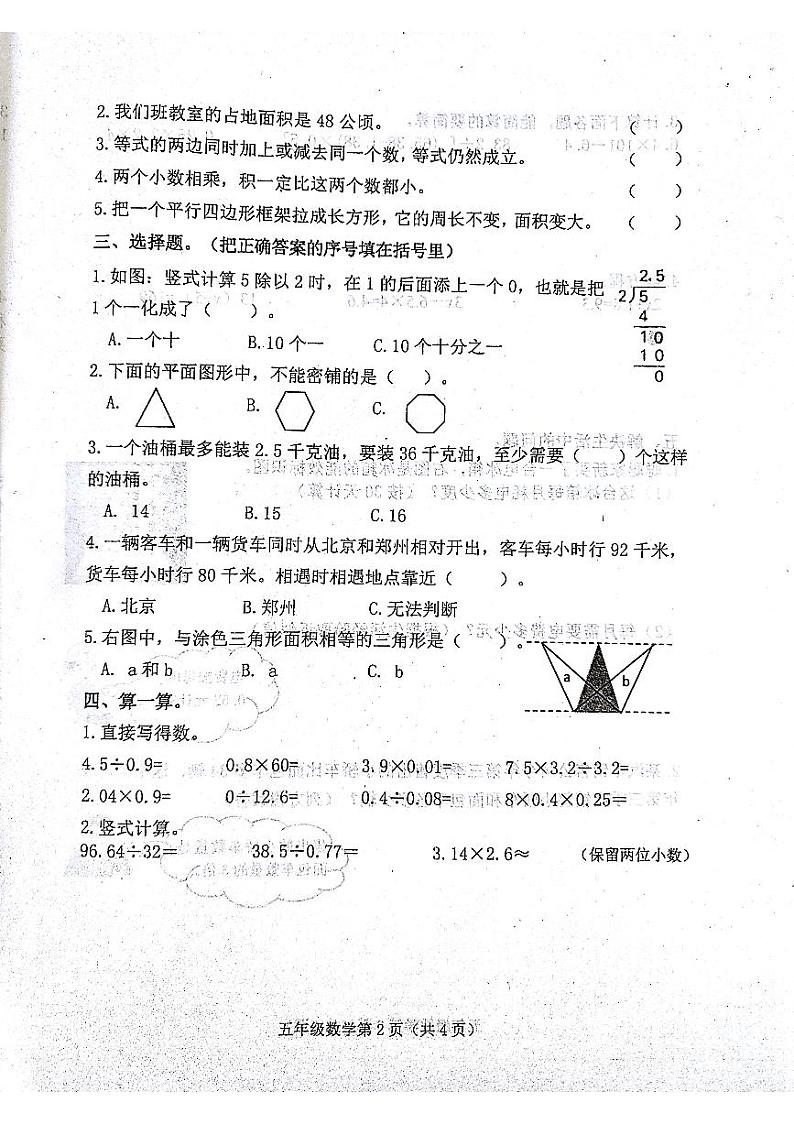 2.我们班教室的占地面积是48公顷。 (  )
3.等式的两边同时加上或减去同一个数，等式仍然成立。 (  )
4.两个小数相乘，积一定比这两个数都小。 (  )
5.把一个平行四边形框架拉成长方形，它的周长不变，面积变大。 (  )
三、选择题。（把正确答案的序号填在括号里）
1.如图：竖式计算5除以2时，在1的后面添上一个0，也就是把
1个一化成了（  ）。
2.5
2)5
4
10
10
0
A.一个十 B.10个一 C.10个十分之一
2.下面的平面图形中，不能密铺的是（  ）。
A. B. C.
3.一个油桶最多能装2.5千克油，要装36千克油，至少需要（  ）个这样
的油桶。
A. 14 B.15 C.16
4.一辆客车和一辆货车同时从北京和郑州相对开出，客车每小时行92千米，
货车每小时行80千米。相遇时相遇地点靠近（  ）。
A.北京 B.郑州 C.无法判断
5.右图中，与涂色三角形面积相等的三角形是（  ）。
a b
A. a和b B. a C. b
四、算一算。
1.直接写得数。
4.5÷0.9= 0.8×60= 3.9×0.01= 7.5×3.2÷3.2=
2.04×0.9= 0÷12.6= 0.4÷0.08= 8×0.4×0.25=
2.竖式计算。
96.64÷32= 38.5÷0.77= 3.14×2.6≈ （保留两位小数）
五年级数学第2页（共4页）